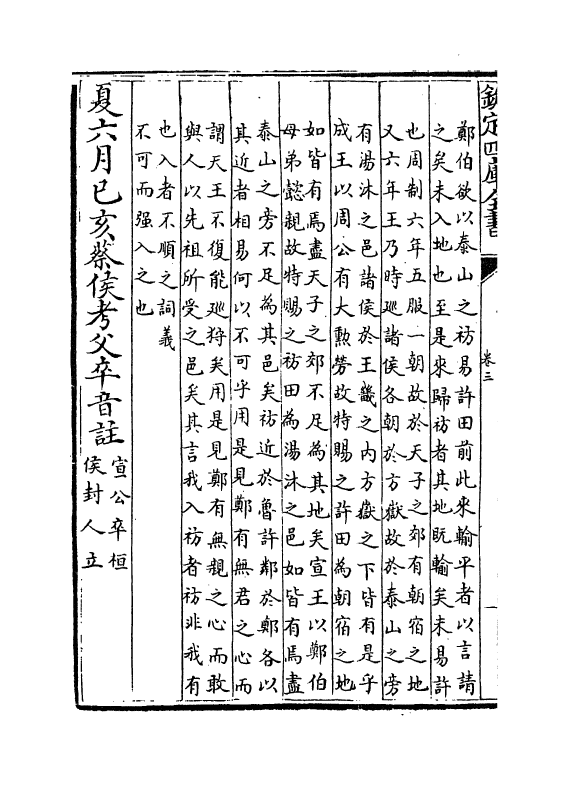 欽定四庫全書
卷三
鄭伯欲以泰山之祊易許田前此來輸平者以言請
之矣未入地也至是來歸祊者其地既輸矣未易許
也周制六年五服一朝故於天子之郊有朝宿之地
又六年王乃時廵諸侯各朝於方嶽故於泰山之旁
有湯沐之邑諸侯於王畿之内方嶽之下皆有是乎
成王以周公有大勲勞故特賜之許田為朝宿之地
如皆有焉盡天子之郊不足為其地矣宣王以鄭伯
母弟懿親故特賜之祊田為湯沐之邑如皆有焉盡
泰山之旁不足為其邑矣祊近於魯許鄰於鄭各以
其近者相易何以不可乎用是見鄭有無君之心而
謂天王不復能廵狩矣用是見鄭有無親之心而敢
與人以先祖所受之邑矣其言我入祊者祊非我有
也入者不順之詞義
不可而强入之也
夏六月已亥蔡侯考父卒音註
宣公卒桓
侯封人立